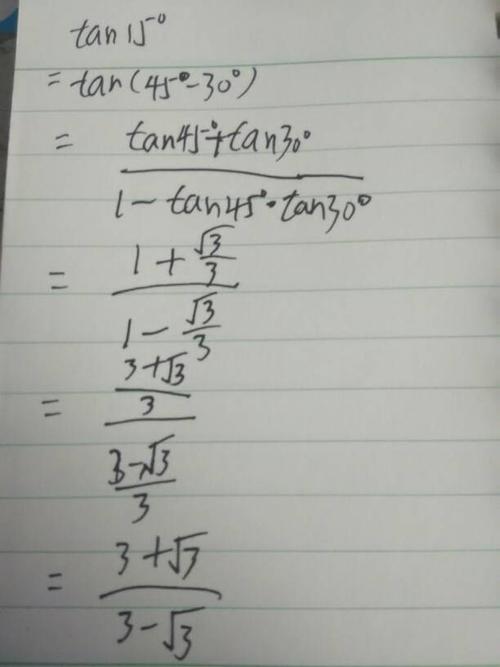 tan15°
= tan(45°-30°)
= (tan45°+tan30°)/(1-tan45°·tan30°)
= (1+√3/3)/(1-√3/3)
= ((3+√3)/3)/((3-√3)/3)
= (3+√3)/(3-√3)